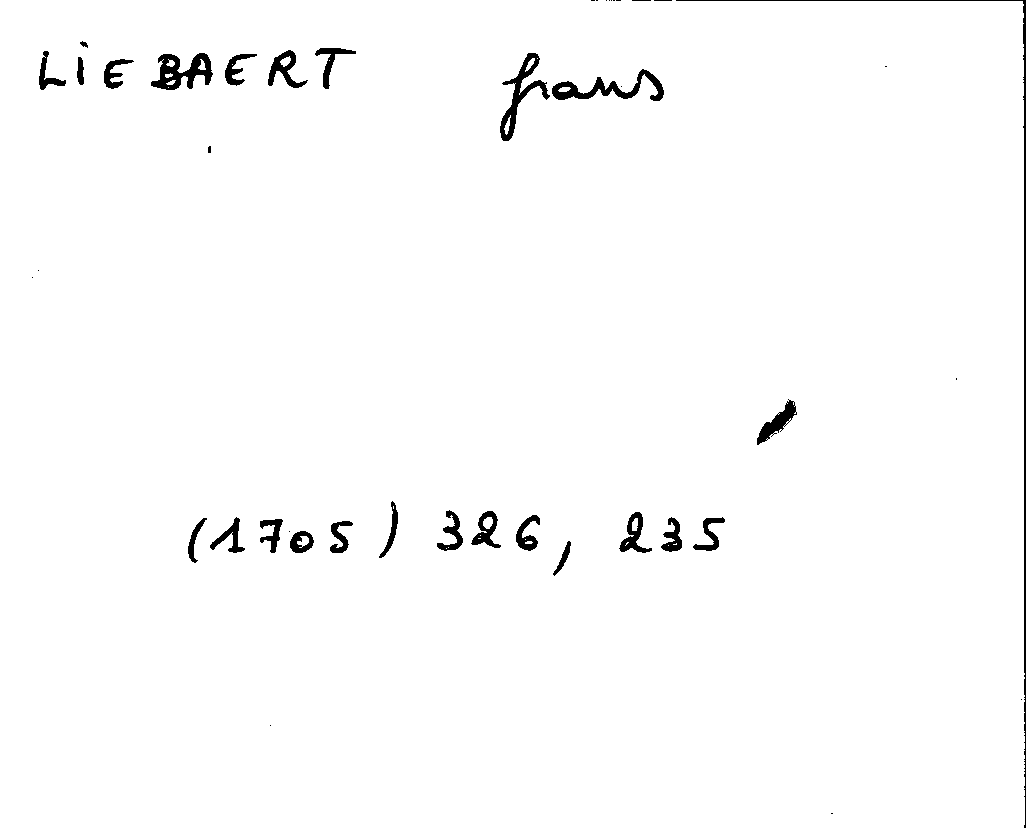 LiEBAERT frans
(1705) 326, 235